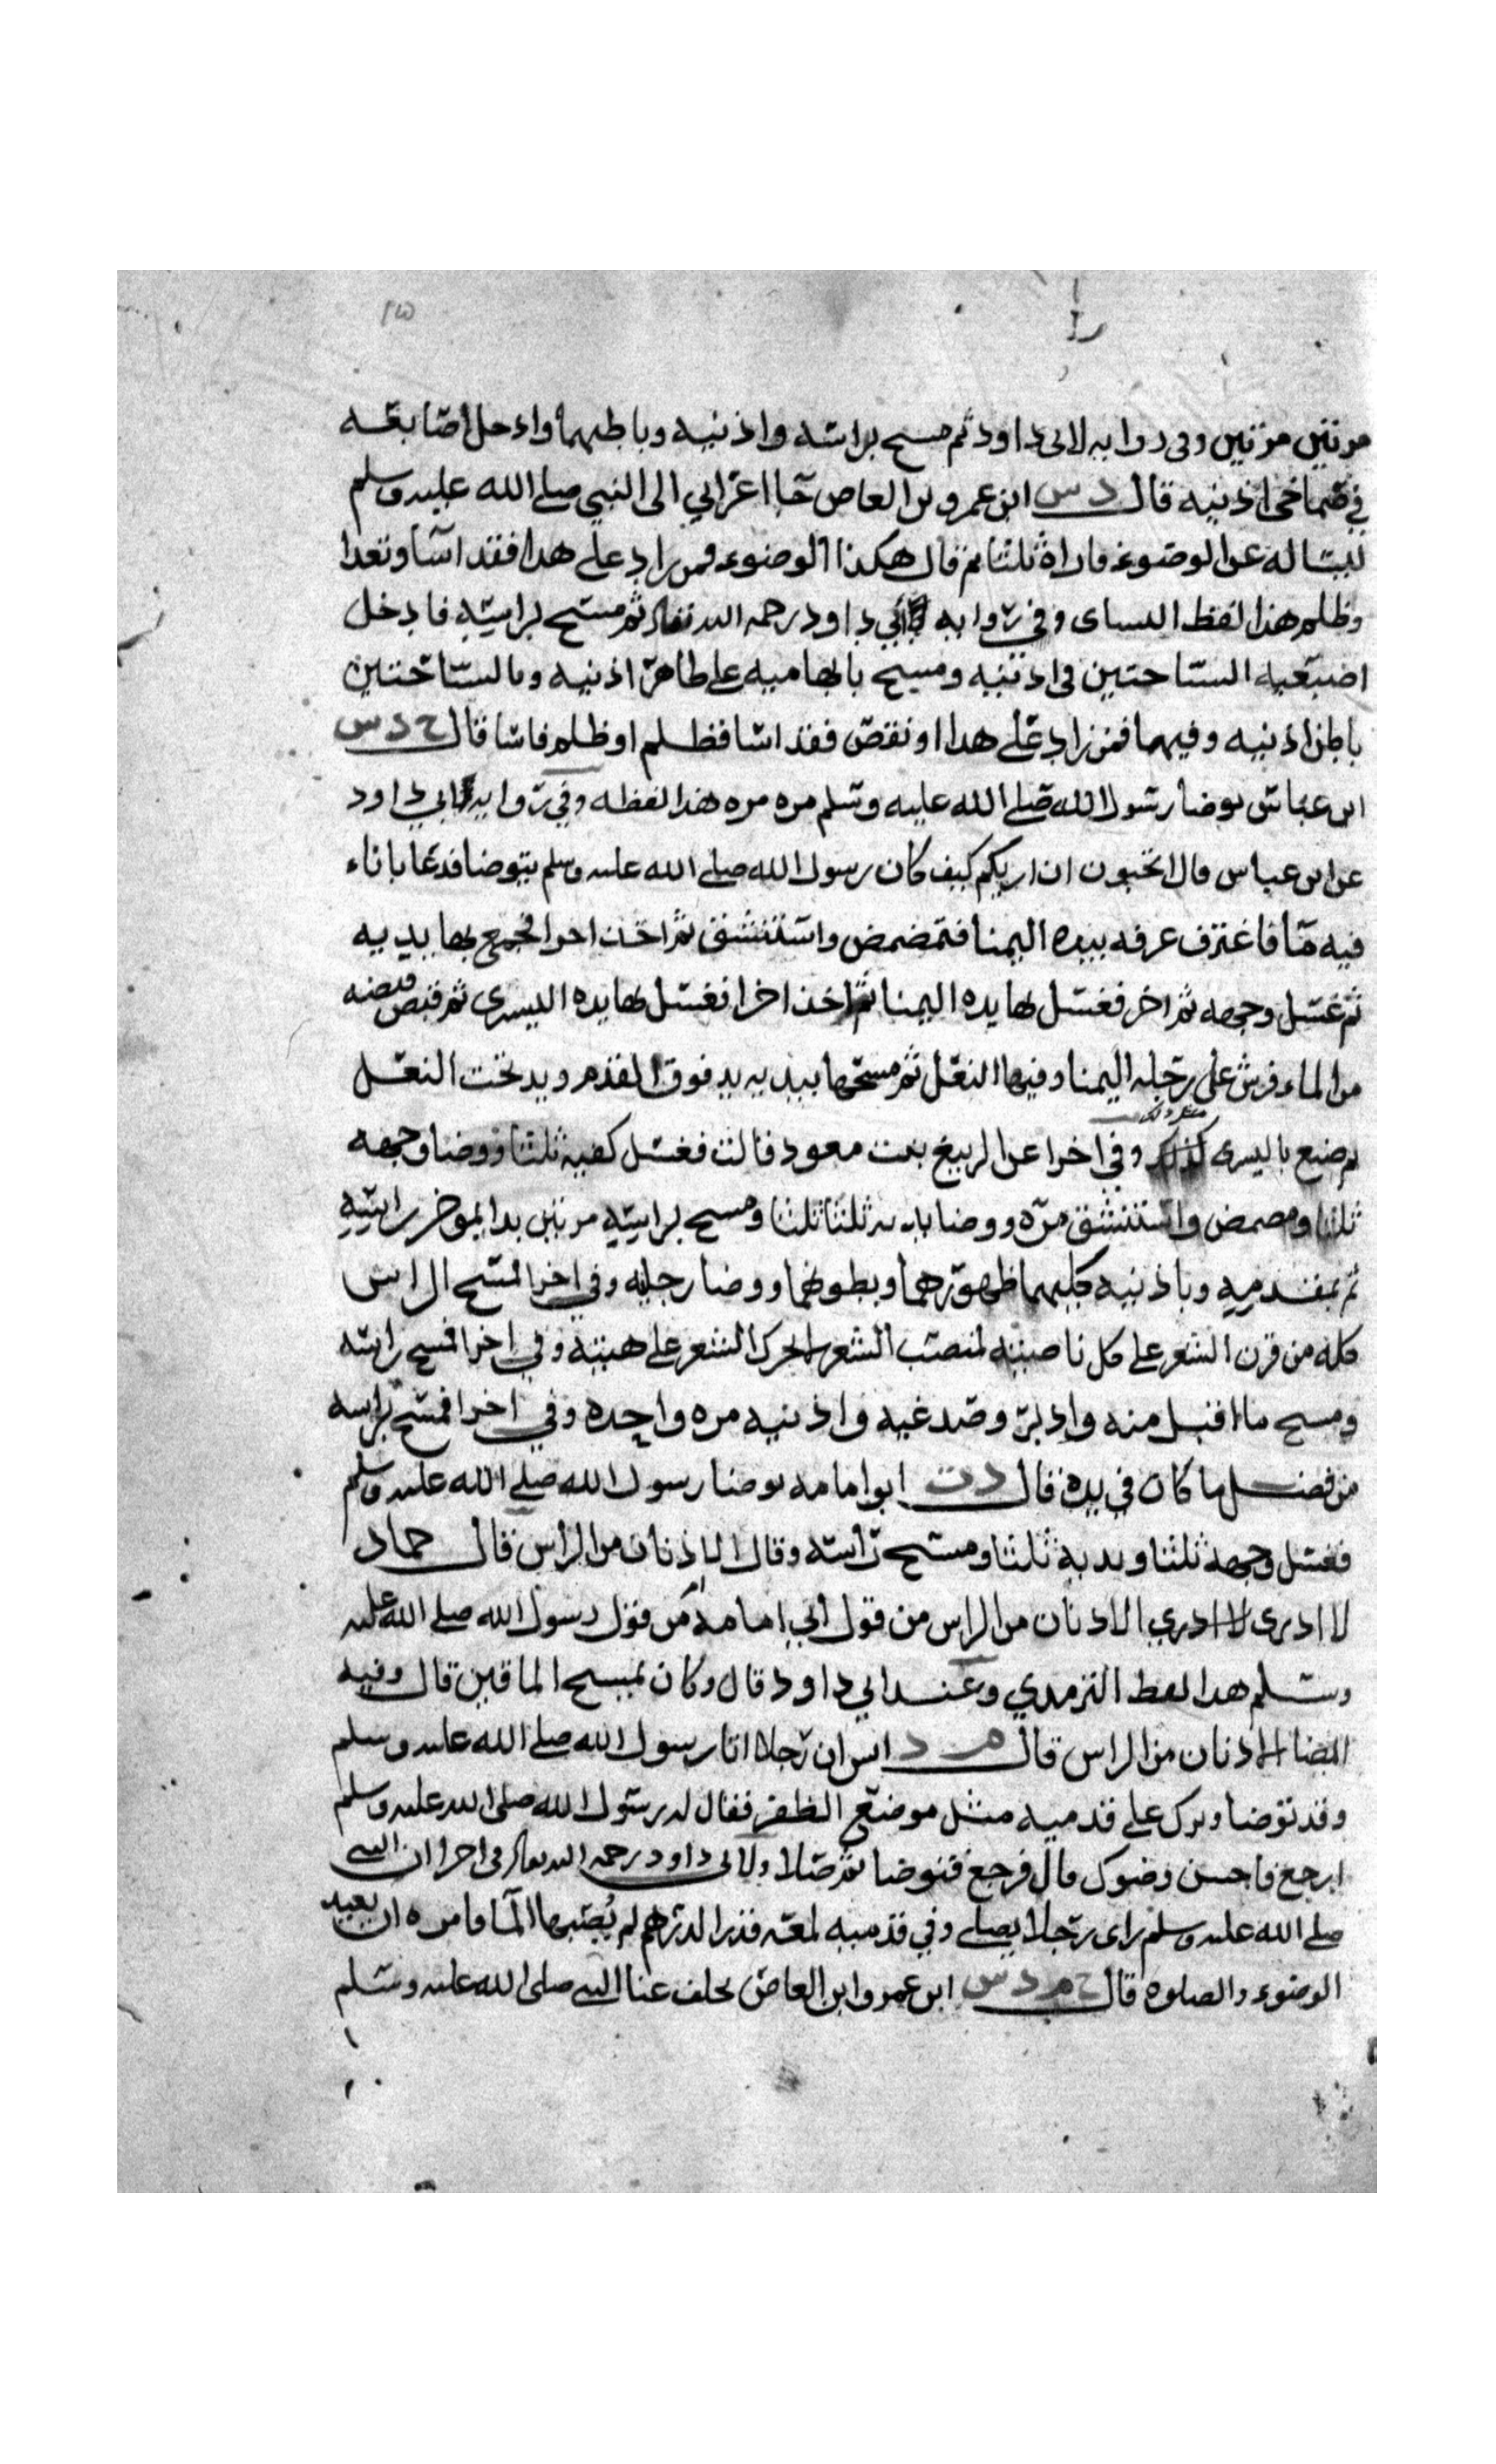 مرتين مرتين وفى روايه لابى داود ثم مسح براسه واذنيه وباطهما وادحل اصابعه
في صماخى اذنيه قال د س ابن عمرو بن العاص جا اعرابي الى النبي صلى الله عليه وسلم
ليساله عن الوضوء فاراه ثلثا ثم قال هكذا الوضوء فمن زاد على هدا فقد اسا وتعدا
وظلم هذا لفظ النساى وفي روايه ابي داود رحمه الله ثم مسح براسه فادخل
اصبعيه السباحتين فى اذنيه ومسح بابهاميه على ظاهر اذنيه وبالسباحتين
باطن اذنيه وفيهما فمن زاد على هدا او نقص فقد اسا فظلم او ظلم فاسا قال خ د س
ابن عباس توضا رسول الله صلى الله عليه وسلم مره مره هذا لفظه وفي روايه ابي داود
عن ابن عباس قال اتحبون ان اريكم كيف كان رسول الله صلى الله عليه وسلم يتوضا فدعا باناء
فيه ما فاغترف غرفه بيده اليمنا فتمضمض واستنشق ثم اخذ اخرا فجمع بها يديه
ثم غسل وجهه ثم اخر فغسل بها يده اليمنا ثم اخذ اخرا فغسل بها يده اليسرى ثم قبض قبضه
من الماء فرش على رجله اليمنا وفيها النعل ثم مسحها بيديه يد فوق القدم ويد تحت النعل
ثم صنع باليسرى مثل ذلك وفي اخرا عن الربيع بنت معود قالت فغسل كفيه ثلثا ووضا وجهه
ثلثا ومضمض واستنشق مره ووضا يديه ثلثا ثلثا ومسح براسه مرتين بدا بموخر راسه
ثم بمقدمه وباذنيه كليهما ظهورهما وبطونهما ووضا رجليه وفي اخرا لمسح الراس
كله من قرن الشعر على كل ناصيته لمنصب الشعر لا يحرك الشعر على هيئته وفي اخرا فمسح راسه
ومسح ما اقبل منه وادبر وصدغيه واذنيه مره واحده وفي اخرا فمسح براسه
من فضل ما كان في يده قال د ت ابو امامه توضا رسول الله صلى الله عليه وسلم
فغسل وجهه ثلثا ويديه ثلثا ومسح راسه وقال الاذنان من الراس قال حماد
لا ادرى لا ادري الاذنان من الراس من قول ابي امامه ام من قول رسول الله صلى الله عليه
وسلم هدا لفظ الترمدي وعند ابي داود قال وكان يمسح الماقين قال وفيه
ايضا الاذنان من الراس قال م د انس ان رجلا اتا رسول الله صلى الله عليه وسلم
وقد توضا وترك على قدميه مثل موضع الظفر فقال له رسول الله صلى الله عليه وسلم
ارجع فاحسن وضوك قال فرجع فتوضا ثم صلا ولابى داود رحمه الله فى اخرا ان النبي
صلى الله عليه وسلم راى رجلا يصلى وفي قدميه لمعه قدر الدرهم لم يصبها الما فامره ان يعيد
الوضوء والصلوه قال خ م د س ابن عمرو ابن العاص تخلف عنا النبي صلى الله عليه وسلم